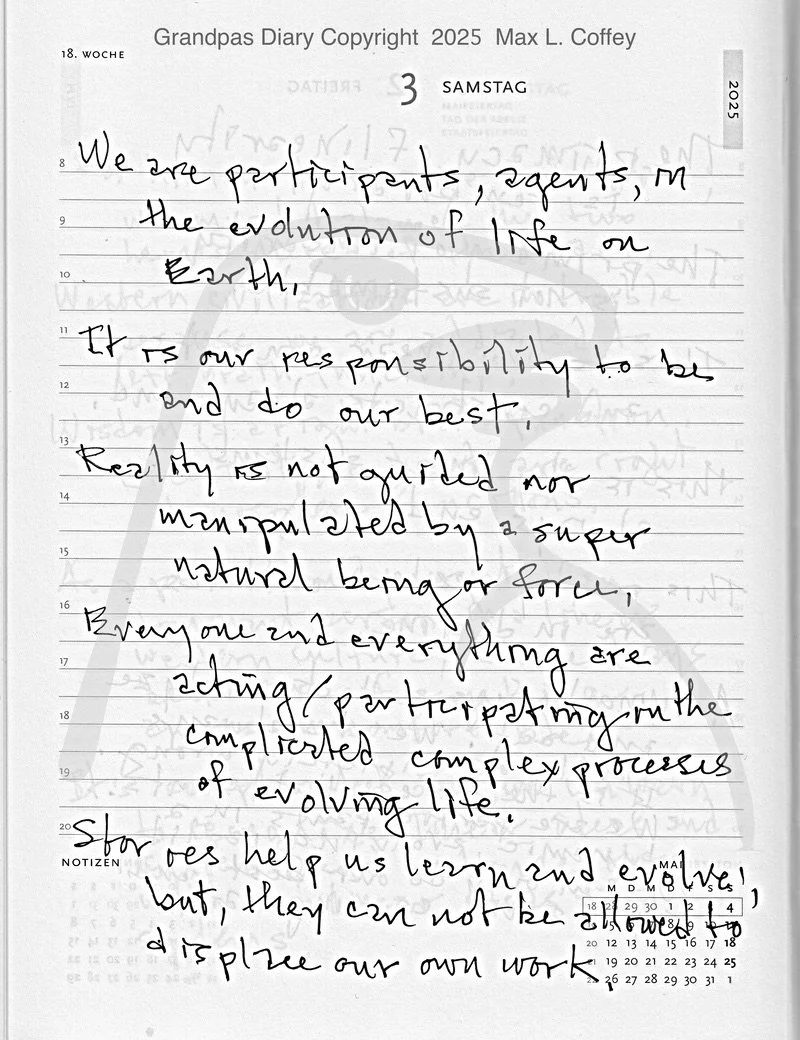 Grandpas Diary Copyright 2025 Max L. Coffey
18. WOCHE
3 SAMSTAG
2025
8 We are participants, agents, in
9 the evolution of life on
10 Earth,
11 It is our responsibility to be
12 and do our best.
13 Reality is not guided nor
14 manipulated by a super
15 natural being or force,
16 Everyone and everything are
17 acting/participating in the
18 complicated complex processes
19 of evolving life.
20 Stories help us learn and evolve,
NOTIZEN
but, they can not be allowed to
displace our own work.
MAI
M D M D F S S
18 28 29 30 1 2 3 4
20 12 13 14 15 16 17 18
21 19 20 21 22 23 24 25
26 27 28 29 30 31 1